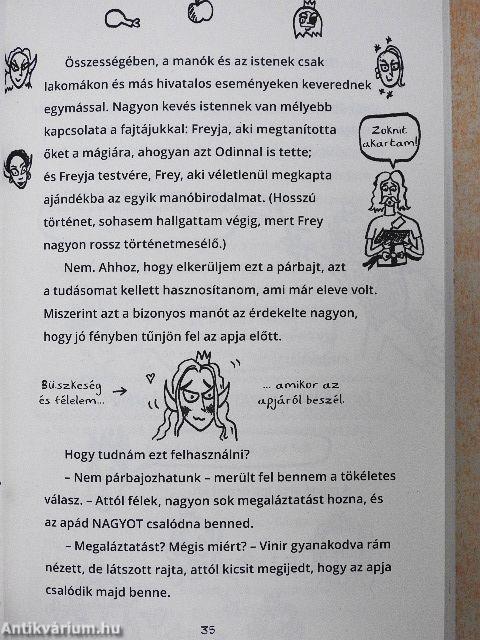 Összességében, a manók és az istenek csak
lakomákon és más hivatalos eseményeken keverednek
egymással. Nagyon kevés istennek van mélyebb
kapcsolata a fajtájukkal: Freyja, aki megtanította
őket a mágiára, ahogyan azt Odinnal is tette;
és Freyja testvére, Frey, aki véletlenül megkapta
ajándékba az egyik manóbirodalmat. (Hosszú
történet, sohasem hallgattam végig, mert Frey
nagyon rossz történetmesélő.)
Zoknit
akartam!
Nem. Ahhoz, hogy elkerüljem ezt a párbajt, azt
a tudásomat kellett hasznosítanom, ami már eleve volt.
Miszerint azt a bizonyos manót az érdekelte nagyon,
hogy jó fényben tűnjön fel az apja előtt.
Büszkeség
és félelem...
... amikor az
apjáról beszél.
Hogy tudnám ezt felhasználni?
– Nem párbajozhatunk – merült fel bennem a tökéletes
válasz. – Attól félek, nagyon sok megaláztatást hozna, és
az apád NAGYOT csalódna benned.
– Megaláztatást? Mégis miért? – Vinir gyanakodva rám
nézett, de látszott rajta, attól kicsit megijedt, hogy az apja
csalódik majd benne.
35
Antikvárium.hu